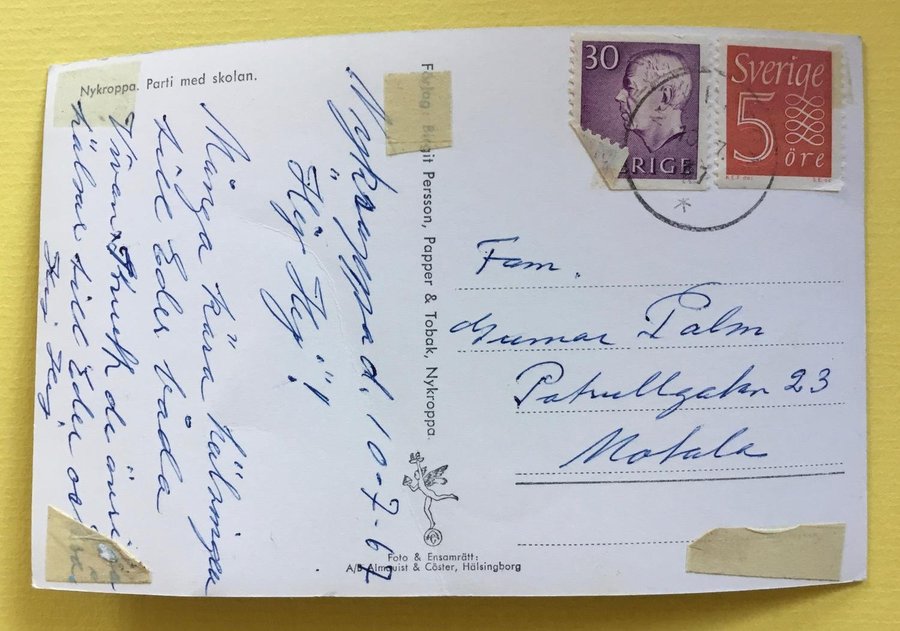 Nykroppa. Parti med skolan.
Nykroppa d. 10-7-67
Hej Hej!
Många kära hälsningar
till Eder båda
hälsar till Eder också
Hej Hej
Förlag: Birgit Persson, Papper & Tobak, Nykroppa.
Foto & Ensamrätt:
A/B Almquist & Cöster, Hälsingborg
30
SVERIGE
Sverige
5
öre
Fam.
Gunnar Palm
Patrullgatan 23
Motala